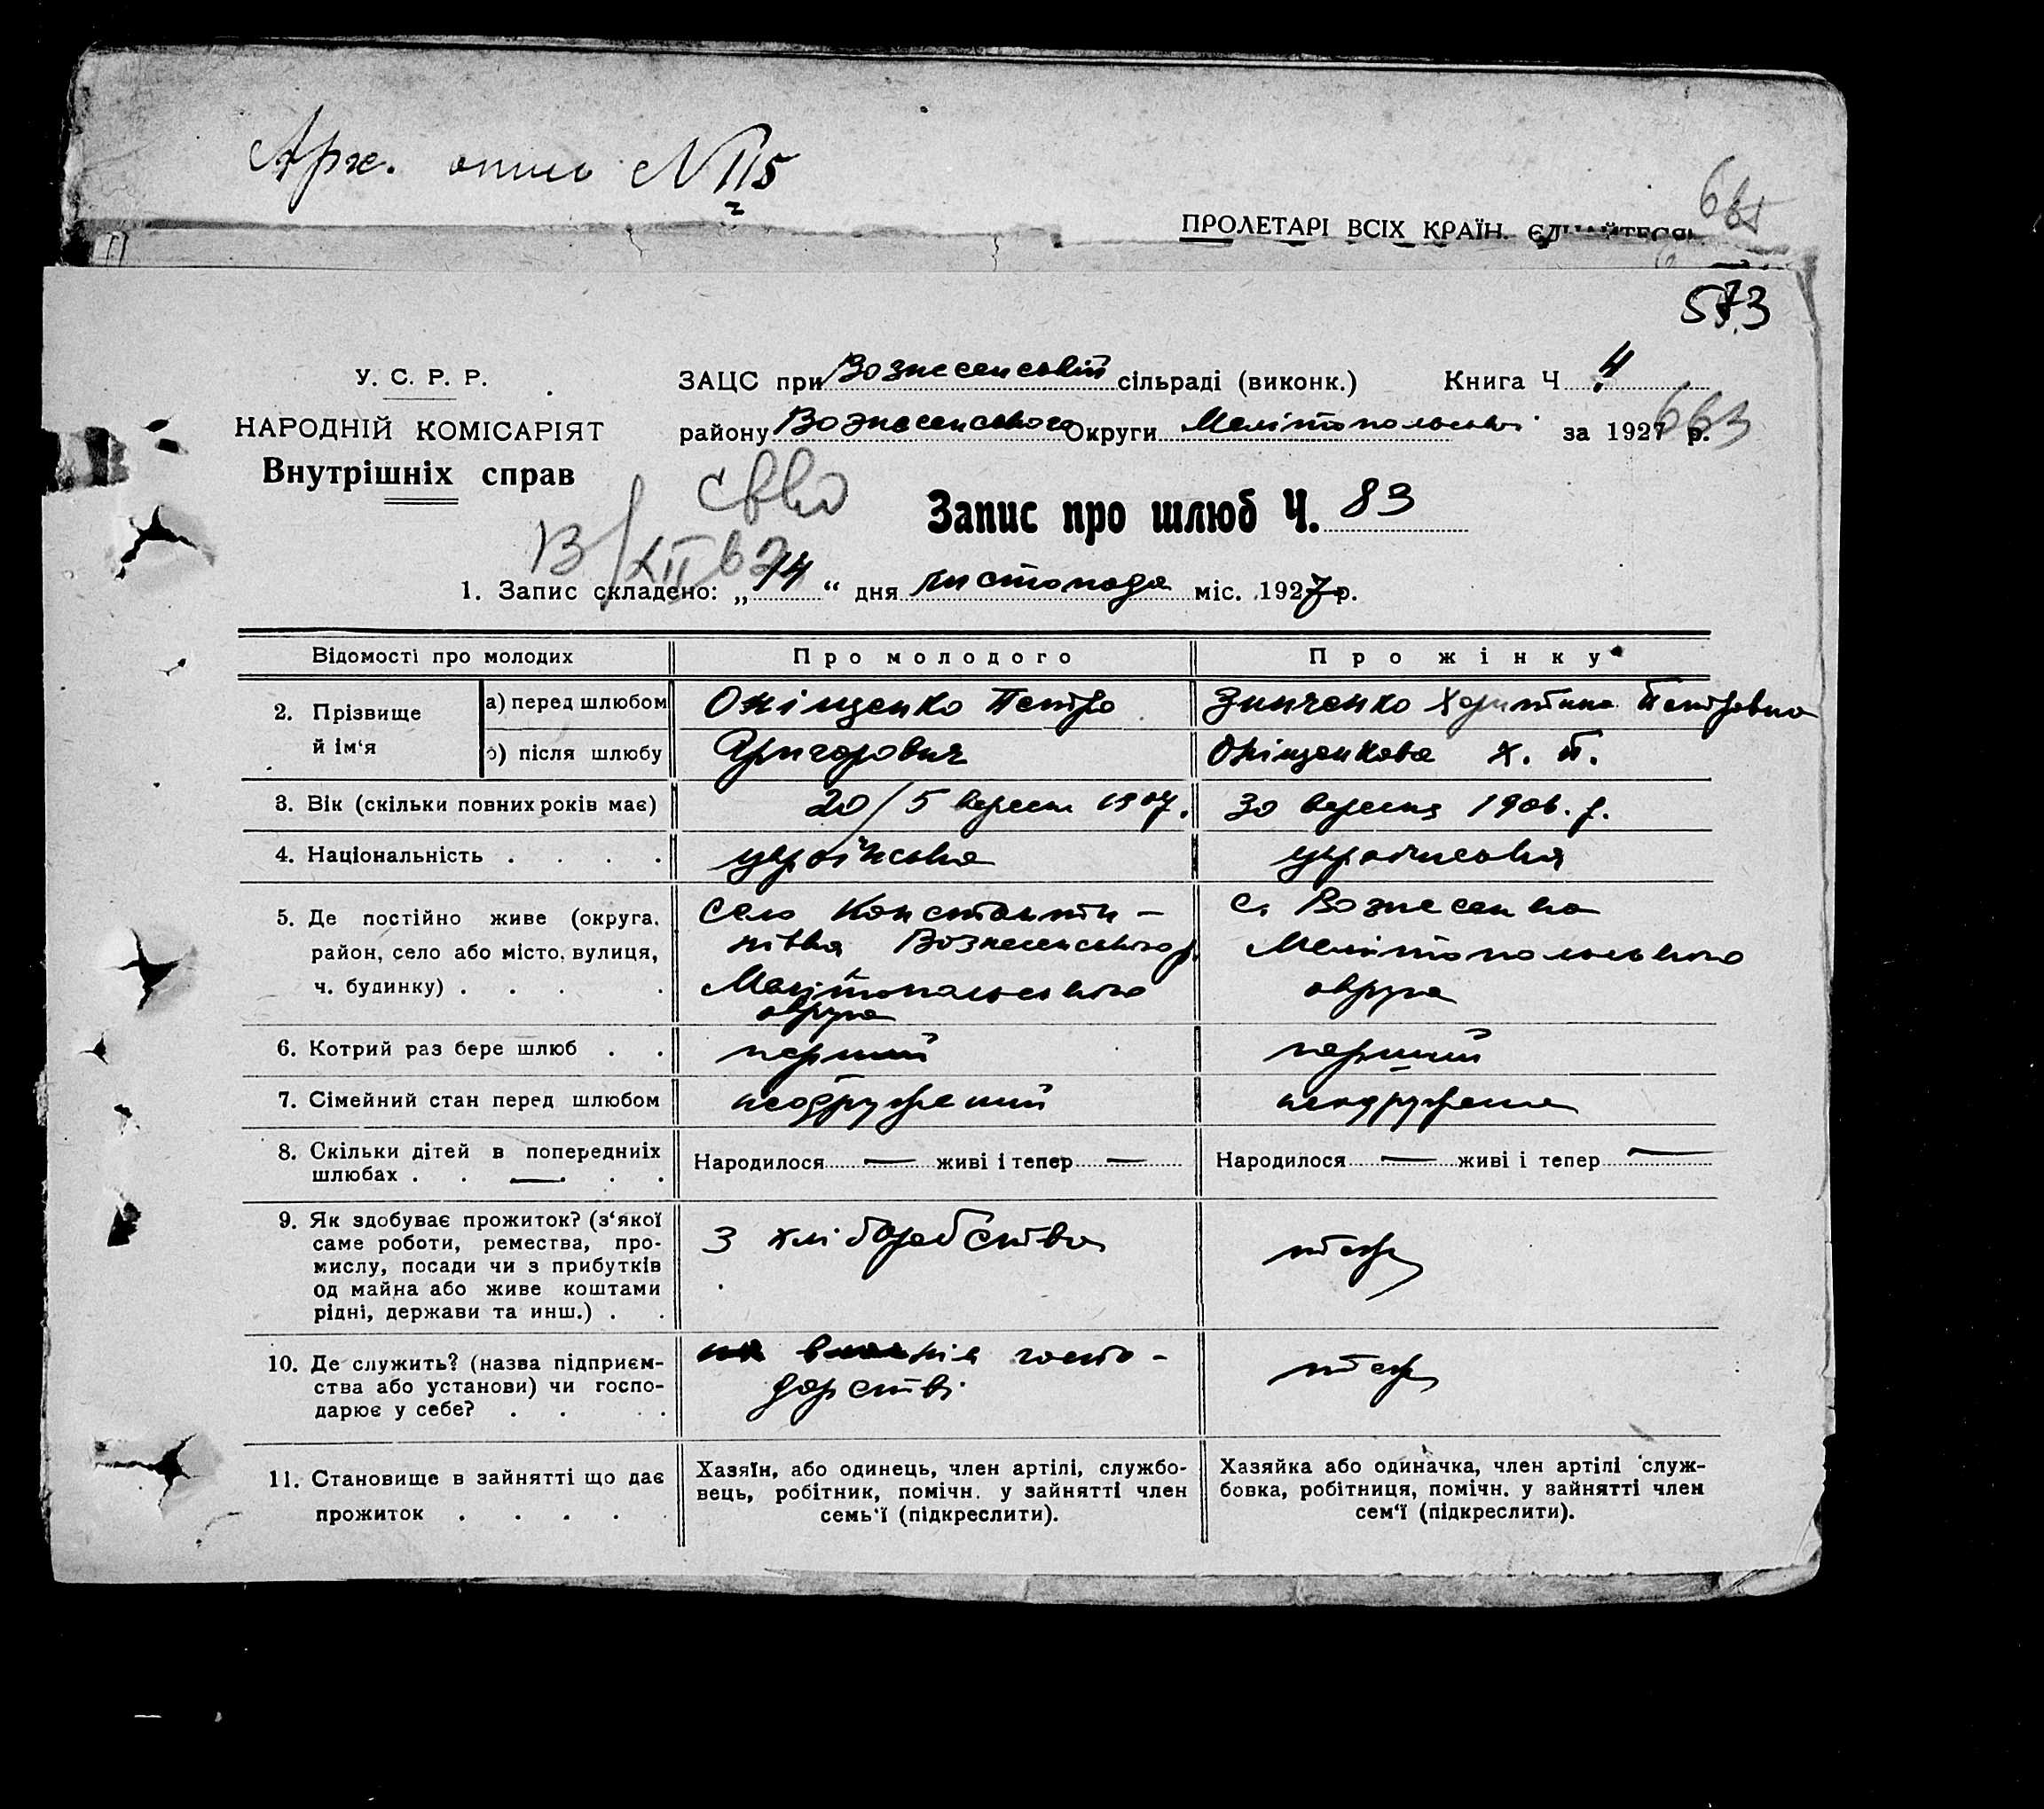 Арх. опись № 115
2
ПРОЛЕТАРІ ВСІХ КРАЇН, ЄДНАЙТЕСЯ!
573
У. С. Р. Р.
НАРОДНІЙ КОМІСАРІЯТ
Внутрішніх справ
ЗАЦС при Вознесенській сільраді (виконк.) Книга Ч 4
району Вознесенського Округи Мелітопольської за 1927 р.
663
Запис про шлюб Ч. 83
1. Запис складено: „ 14 “ дня листопада міс. 1927 р.
Відомості про молодих Про молодого Про жінку
2. Прізвище й ім‘я
а) перед шлюбом Оніщенко Петро Зинченко Харитина Петровна
б) після шлюбу Григорович Оніщенкова Х. П.
3. Вік (скільки повних років має) 20/5 вересн 1907. 30 вересня 1906. р.
4. Національність . . . . українська українська
5. Де постійно живе (округа, район, село або місто, вулиця, ч. будинку) . . . .
село Константи-
нівка Вознесенського р.
Мелітопольського
округа
с. Вознесенка
Мелітопольського
округа
6. Котрий раз бере шлюб . . перший перший
7. Сімейний стан перед шлюбом неодружений неодружена
8. Скільки дітей в попередниіх шлюбах . . — . . .
Народилося — живі і тепер —
Народилося — живі і тепер —
9. Як здобуває прожиток? (з‘якої
саме роботи, ремества, про-
мислу, посади чи з прибутків
од майна або живе коштами
рідні, держави та инш.) . .
з хліборобства
теж
10. Де служить? (назва підприєм-
ства або установи) чи госпо-
дарює у себе? . . . .
госпо-
дарстві
теж
11. Становище в зайнятті що дає
прожиток . . . . .
Хазяїн, або одинець, член артілі, службо-
вець, робітник, помічн. у зайнятті член
семь‘ї (підкреслити).
Хазяйка або одиначка, член артілі служ-
бовка, робітниця, помічн. у зайнятті член
сем‘ї (підкреслити).